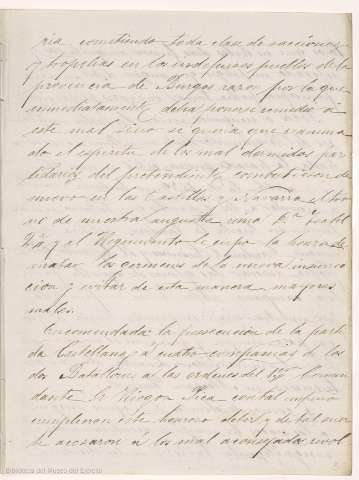 ria cometiendo toda clase de vacciones
y tropelias en los indefensos pueblos de la
provincia de Burgos razon por la que
inmediatamente debia ponerse remedio á
este mal sino se queria que reanima
do el espiritu de los mal dormidos par
tidarios del pretendiente combatiesen de
nuevo en las Castillas y Navarra el tro
no de nuestra augusta niña Dª Isabel
2ª y al Regimiento le cupo la honra de
matar los germenes de la nueva insurrec
cion y evitar de esta manera mayores
males.
Encomendada la persecucion de la parti
da Castellana á cuatro compañias de los
dos Batallones á las ordenes del 2º Coman
dante Sr. con tal empeño
cumplieron este honroso deber y de tal suer
te acosaron á los mal aconsejados revol
Biblioteca del Museo del Ejército